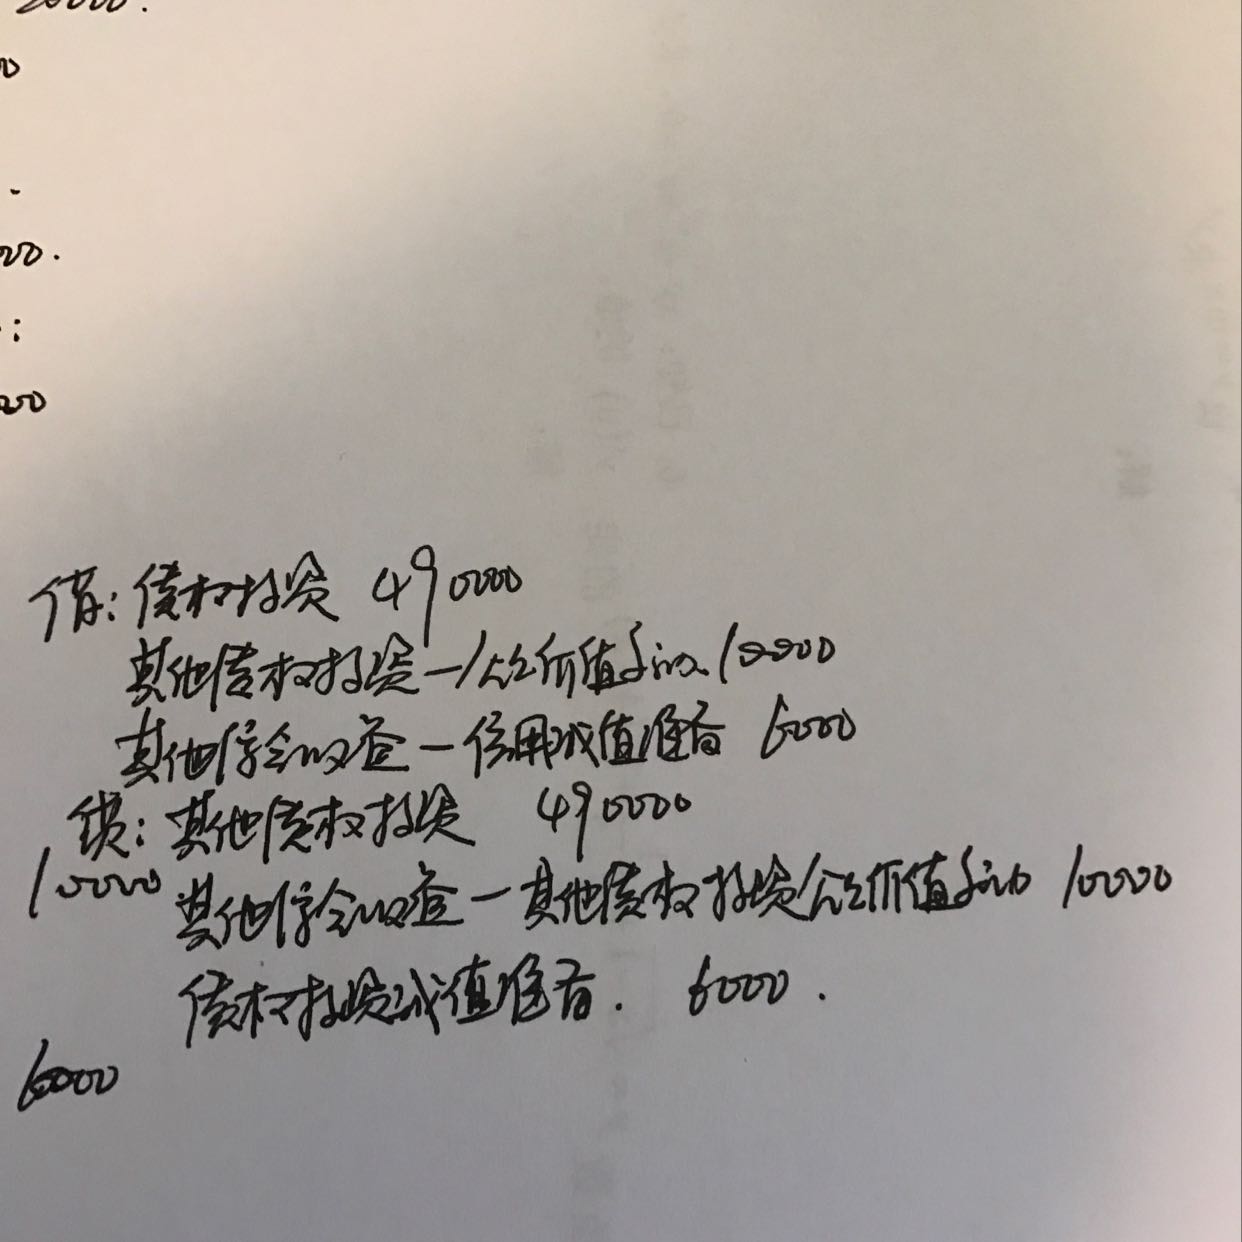 20000.
00
000.
:
000
借：债权投资 490000
其他债权投资—公允价值变动 10000
其他综合收益—信用减值准备 6000
贷：其他债权投资 490000
10000 其他综合收益—其他债权投资公允价值变动 10000
债权投资减值准备. 6000.
6000